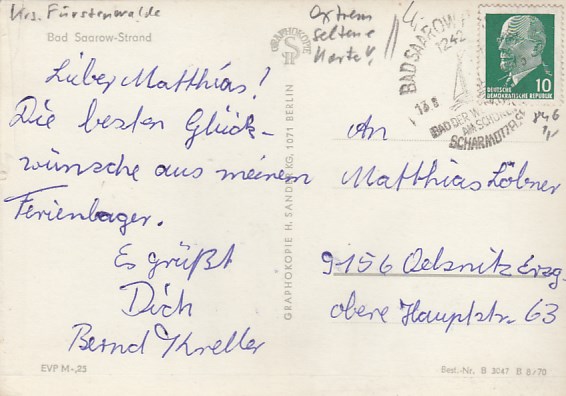 Krs. Fürstenwalde
Bad Saarow-Strand
extrem
seltene
Karte!
Lieber Matthias!
Die besten Glück-
wünsche aus meinem
Ferienlager.
Es grüßt
Dich
Bernd Kreller
EVP M -,25
GRAPHOKOPIE
GRAPHOKOPIE H. SANDER KG, 1071 BERLIN
BAD SAAROW
1242
13.8
BAD DER
AM SCHÖNEN
SCHARMÜTZELSEE
DEUTSCHE
DEMOKRATISCHE REPUBLIK
10
846
An
Matthias Löbner
9156 Oelsnitz Erzg.
obere Hauptstr. 63
Best.-Nr. B 3047 B 8/70